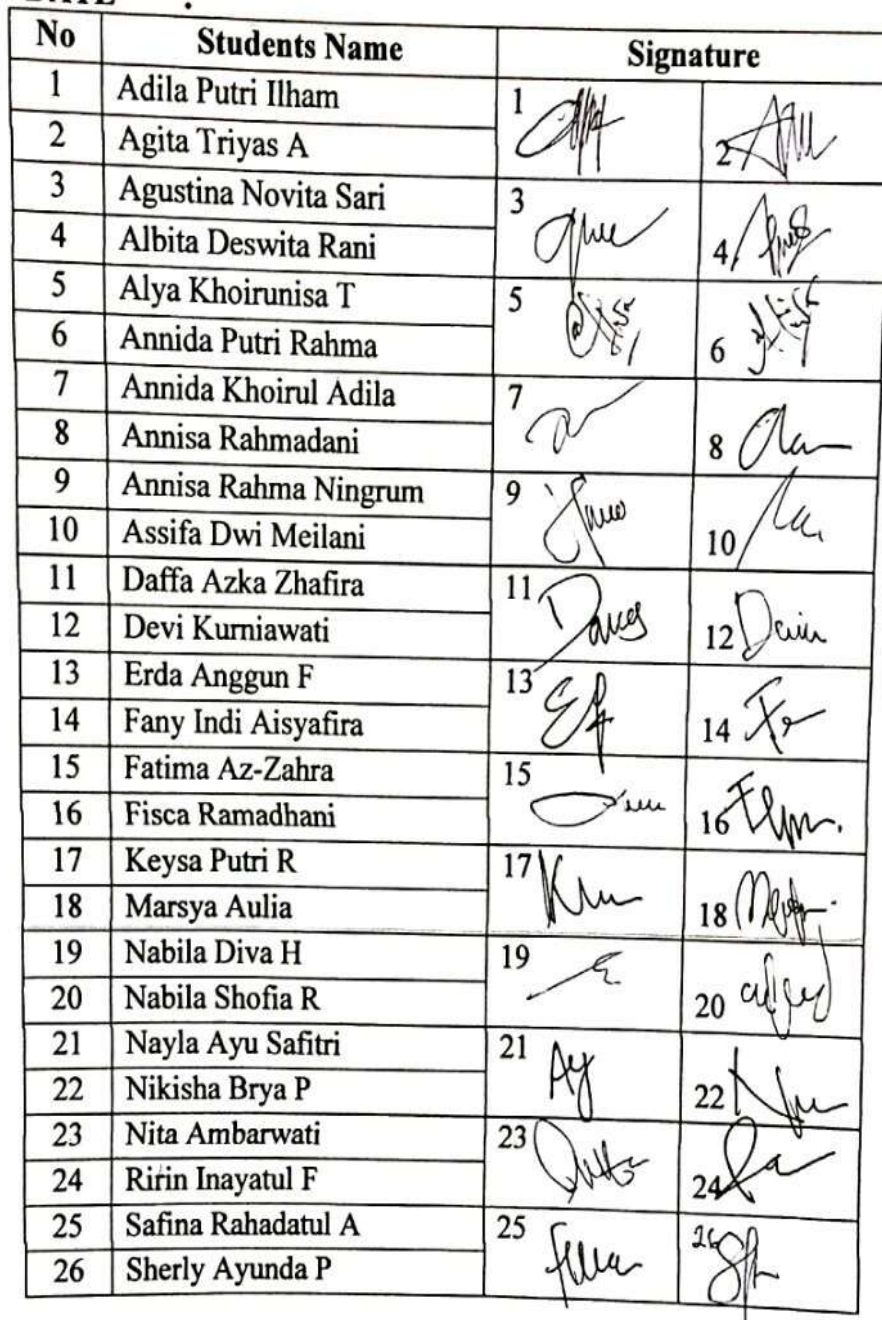 No Students Name Signature
1 Adila Putri Ilham 1
2 Agita Triyas A 2
3 Agustina Novita Sari 3
4 Albita Deswita Rani 4
5 Alya Khoirunisa T 5
6 Annida Putri Rahma 6
7 Annida Khoirul Adila 7
8 Annisa Rahmadani 8
9 Annisa Rahma Ningrum 9
10 Assifa Dwi Meilani 10
11 Daffa Azka Zhafira 11
12 Devi Kurniawati 12
13 Erda Anggun F 13
14 Fany Indi Aisyafira 14
15 Fatima Az-Zahra 15
16 Fisca Ramadhani 16
17 Keysa Putri R 17
18 Marsya Aulia 18
19 Nabila Diva H 19
20 Nabila Shofia R 20
21 Nayla Ayu Safitri 21
22 Nikisha Brya P 22
23 Nita Ambarwati 23
24 Ririn Inayatul F 24
25 Safina Rahadatul A 25
26 Sherly Ayunda P 26